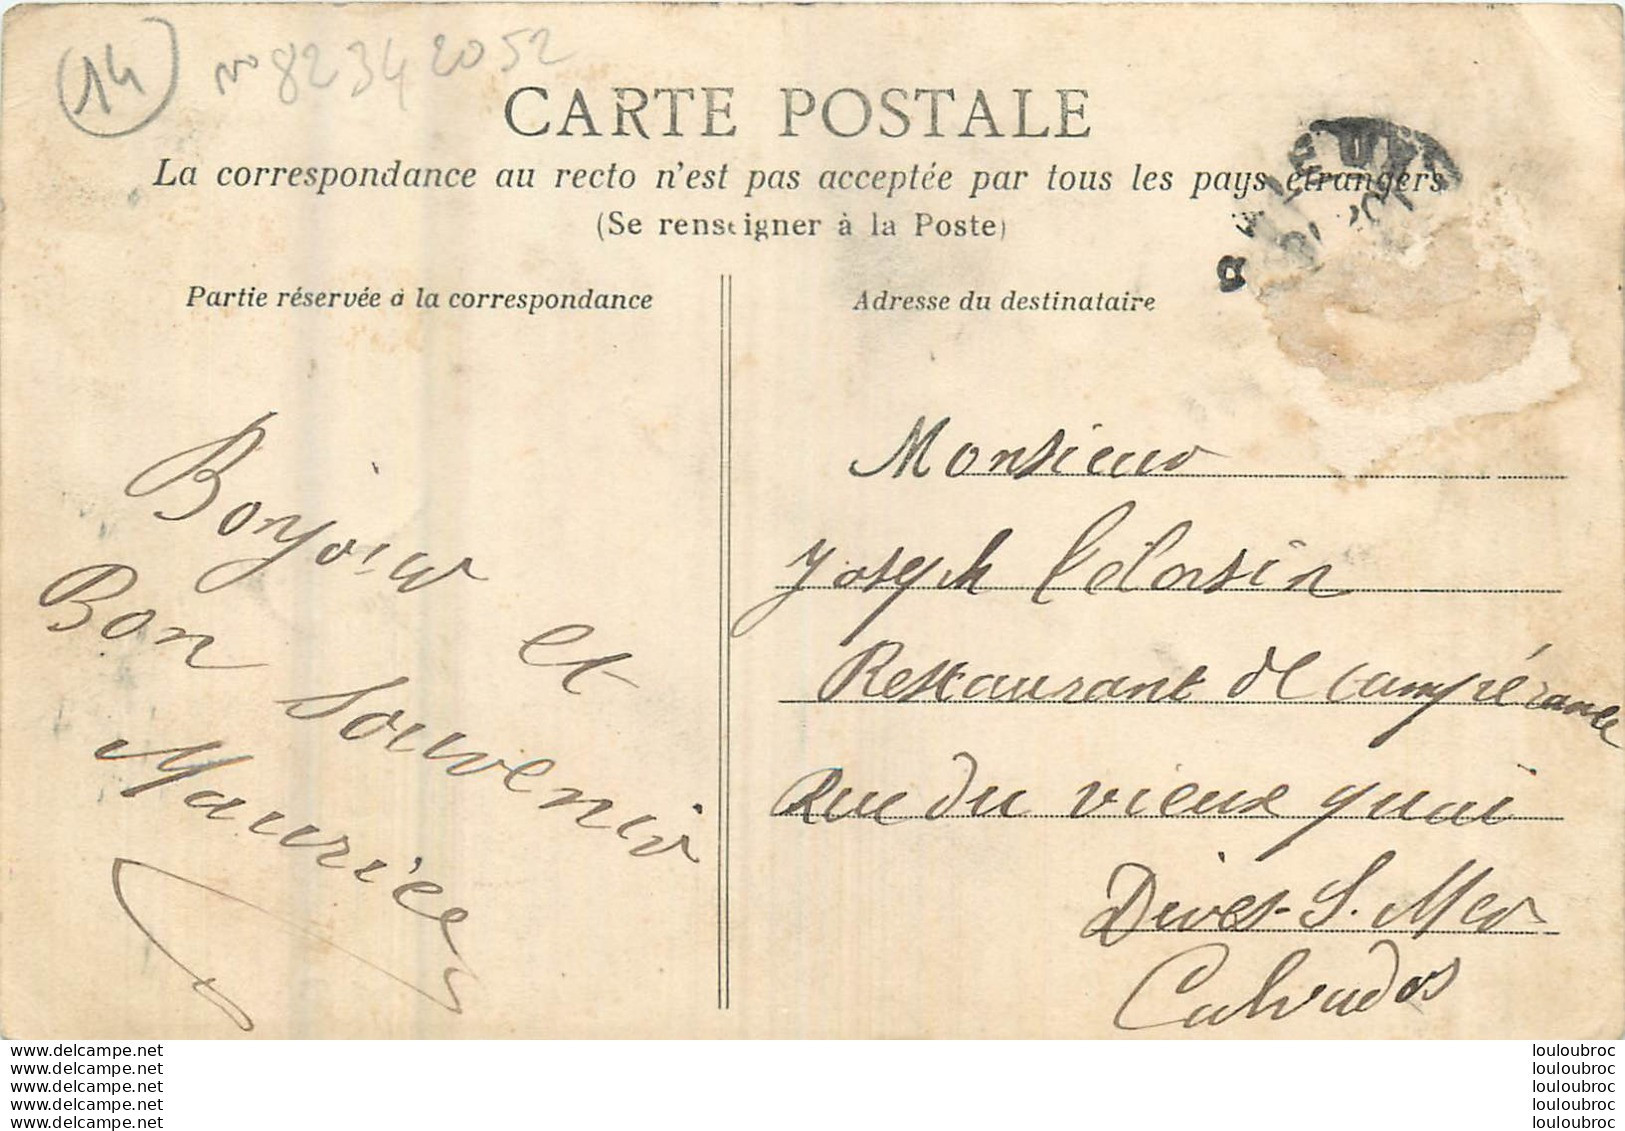 14
No 82342052
CARTE POSTALE
La correspondance au recto n'est pas acceptée par tous les pays étrangers
(Se renseigner à la Poste)
Partie réservée à la correspondance
Bonjour et
Bon Souvenir
Maurice
Adresse du destinataire
Monsieur
Joseph
Restaurant de Tempérance
Rue du vieux quai
Dives-S. Mer
Calvados
www.delcampe.net
www.delcampe.net
www.delcampe.net
www.delcampe.net
www.delcampe.net
louloubroc
louloubroc
louloubroc
louloubroc
louloubroc